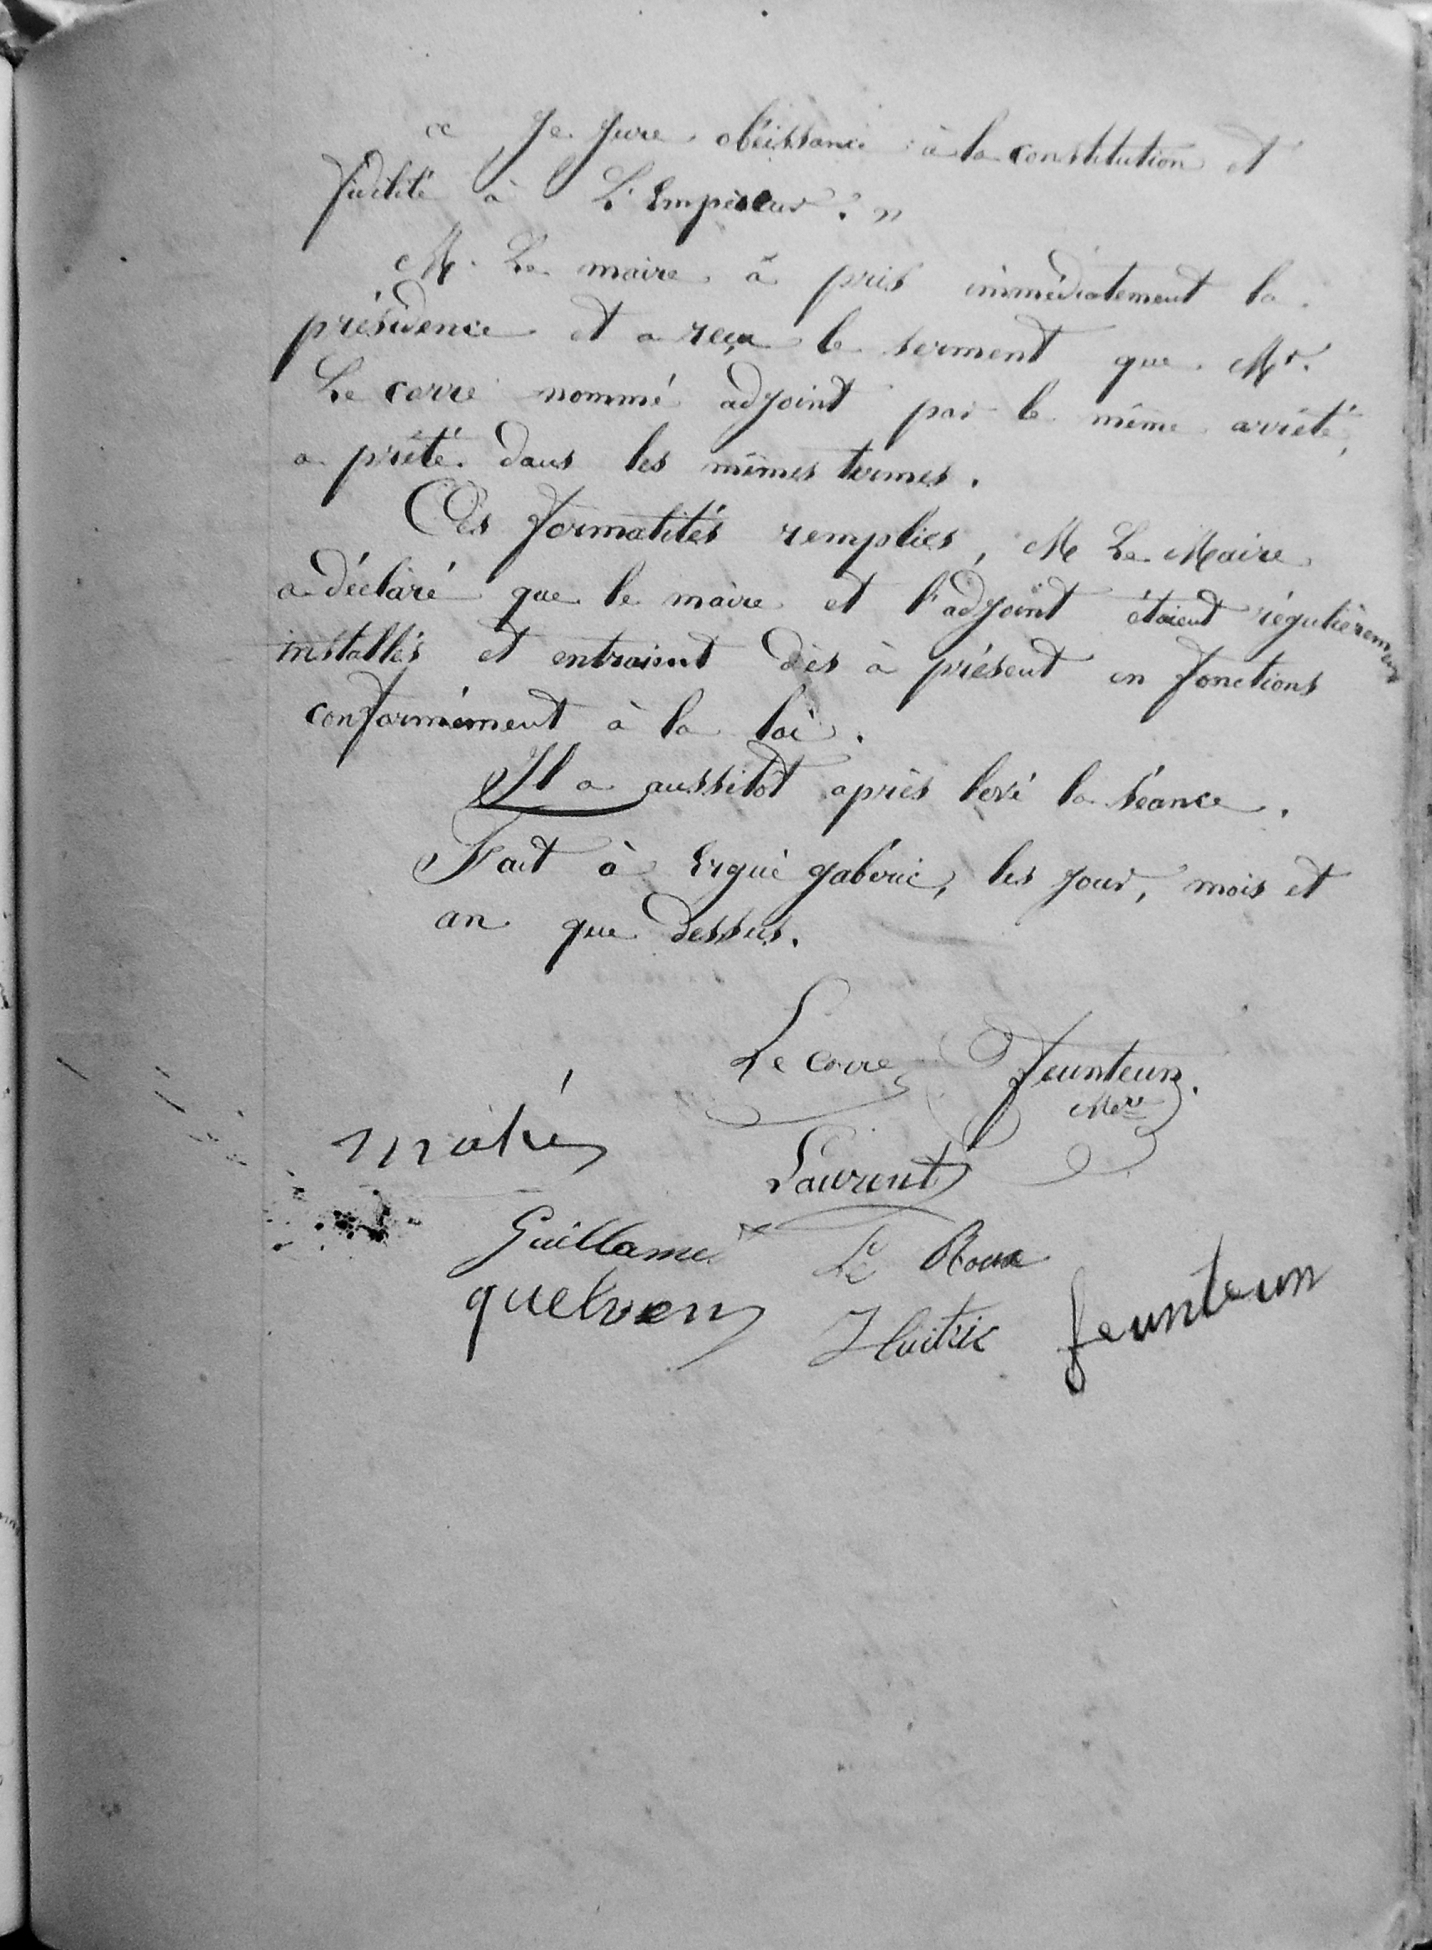 « Je Jure obéissance à la constitution et
fidélité à L'Empereur. »
M. Le maire à pris immédiatement la
présidence et a reçu le serment que Mr.
Le corre nommé adjoint par le même arrêté,
a prêté dans les mêmes termes.
Ces formalités remplies, M Le Maire
a déclaré que le maire et l'adjoint étaient régulièrement
installés et entraient dès à présent en fonctions
conformément à la loi.
Il a aussitôt après levé la séance.
Fait à Ergué gabéric, les jour, mois et
an que dessus.
Le corre feunteun.
Mre
mahé
Laurent
Guillame Le Roux
quelven Huitric feunteun